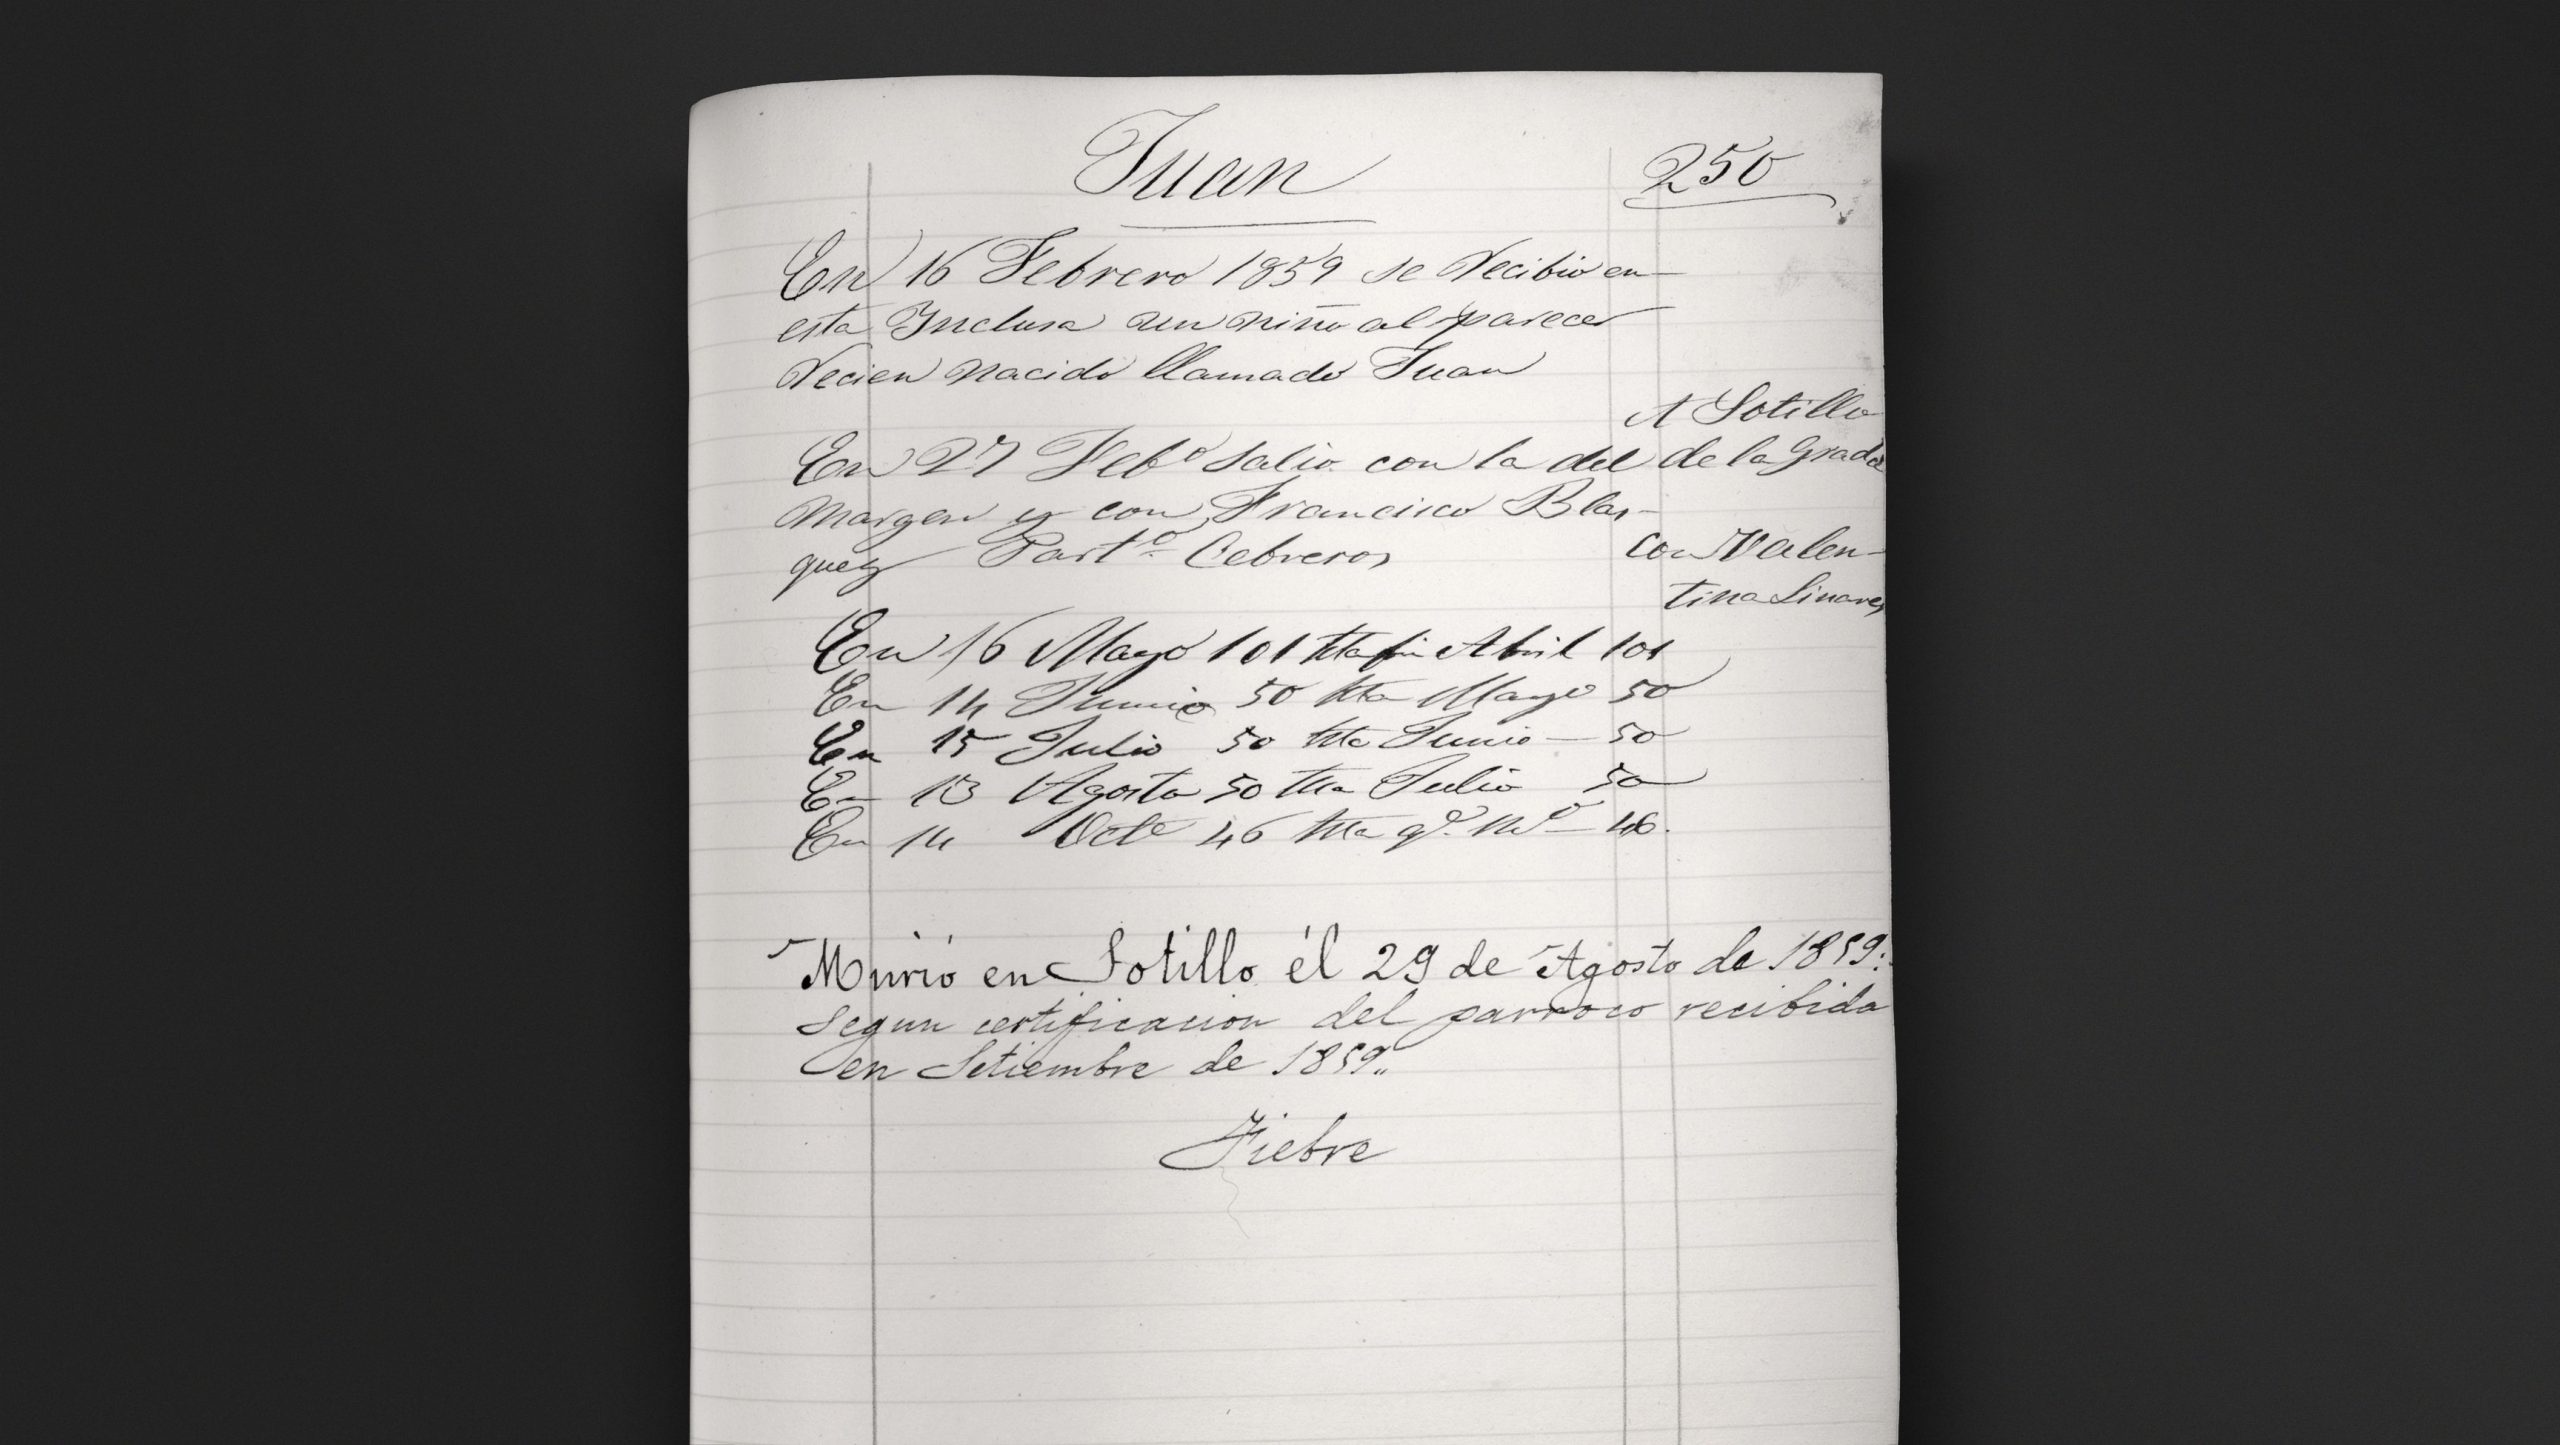 Juan
250
En 16 Febrero 1859 se recibio en
esta Inclusa un niño al parecer
recien nacido llamado Juan
A Sotillo
de la Grada
En 27 Febo salio con la del
margen y con Francisco Blas-
quez Parto Cebreros
con Valen-
tina Linares
En 16 Mayo 101 hta fin Abril 101
En 14 Junio 50 hta Mayo 50
En 15 Julio 50 hta Junio — 50
En 13 Agosto 50 hta Julio 50
En 14 Octe 46 hta qe. mo — 46.
Murió en Sotillo él 29 de Agosto de 1859:
segun certificacion del parroco recibida
en Setiembre de 1859..
Fiebre